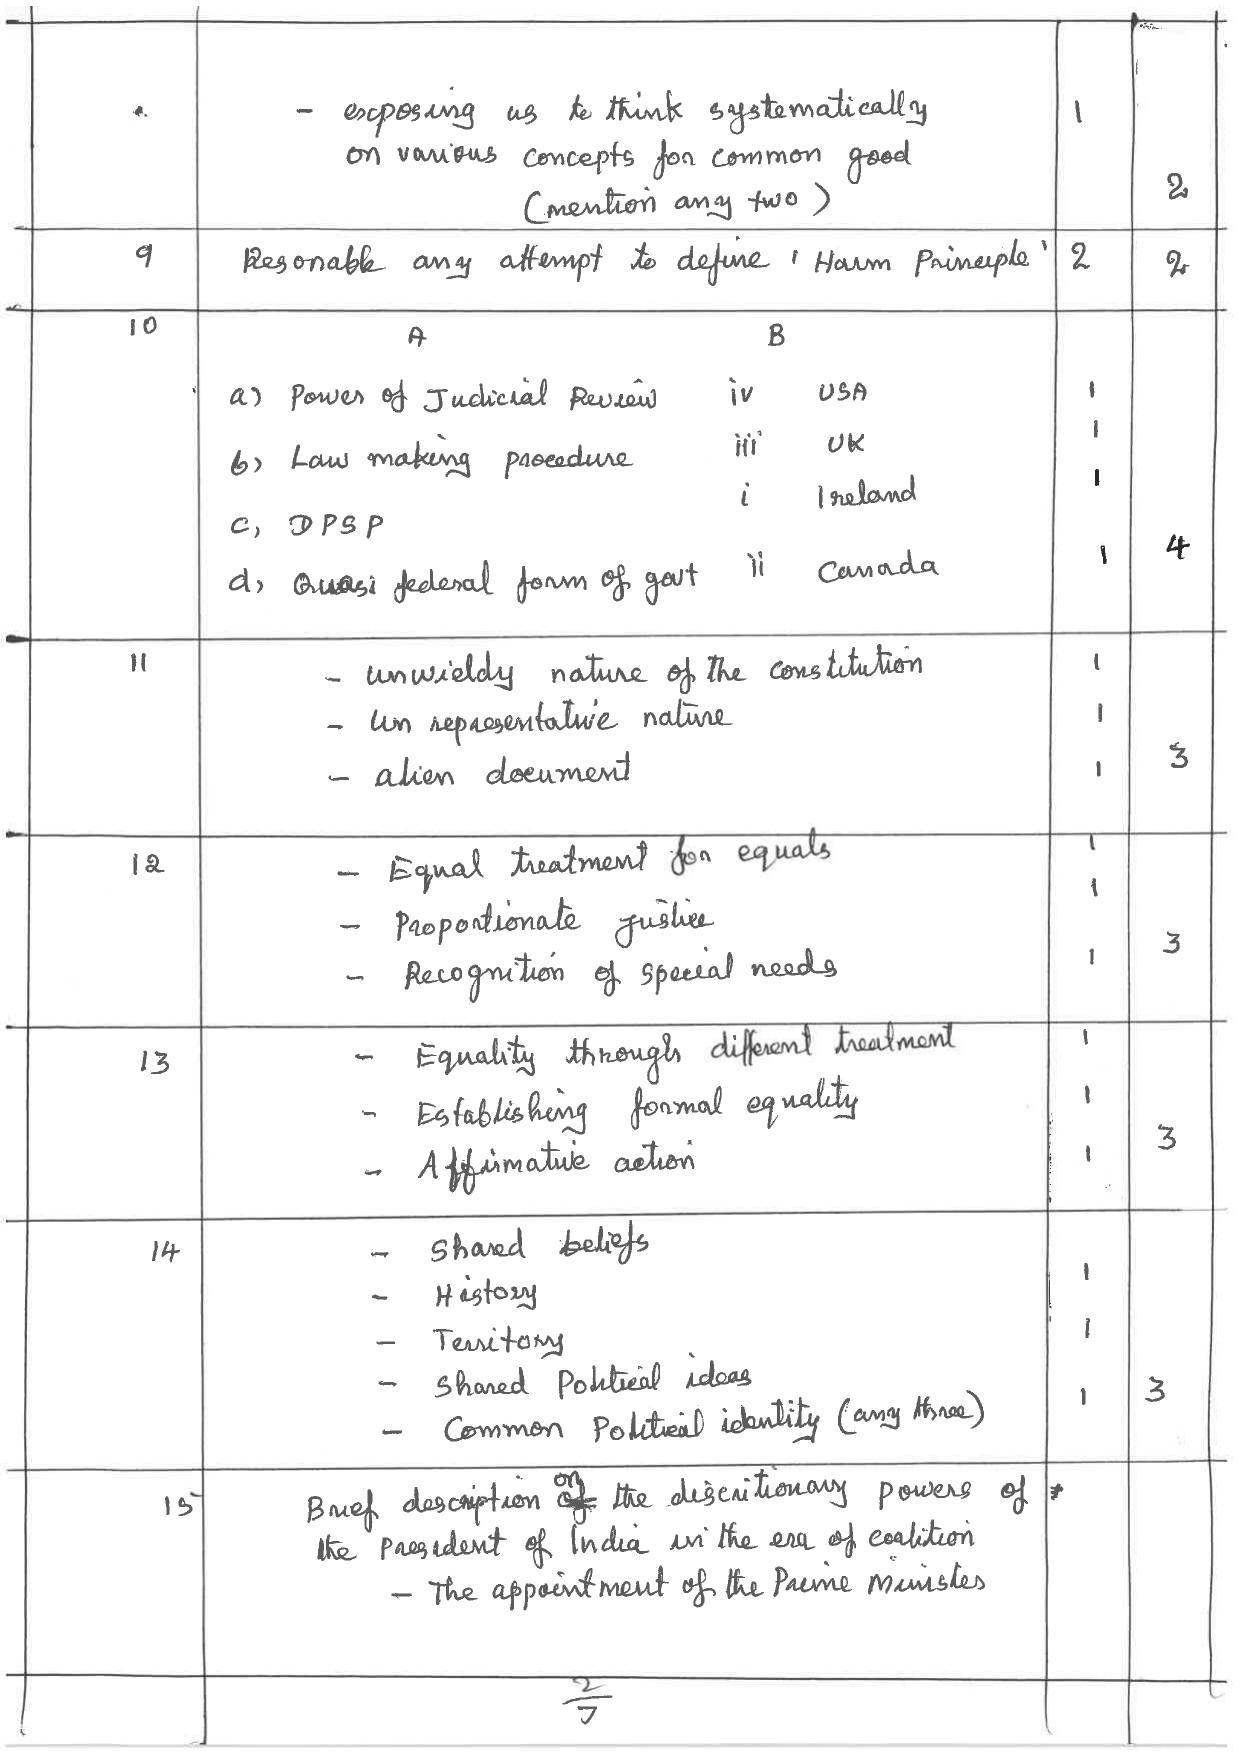 - exposing us to think systematically 1
on various concepts for common good
(mention any two) 2
9 Resonable any attempt to define 'Harm Principle' 2 2
10 A B
a) Power of Judicial Review iv USA 1
b) Law making procedure iii UK 1
c, DPSP i Ireland 1
d, Quasi federal form of govt ii Canada 1 4
11 - unwieldy nature of the constitution 1
- un representative nature 1
- alien document 1 3
12 - Equal treatment for equals 1
- Proportionate justice 1
- Recognition of special needs 1 3
13 - Equality through different treatment 1
- Establishing formal equality 1
- Affirmative action 1 3
14 - Shared beliefs
- History 1
- Territory 1
- Shared Political ideas
- Common Political identity (any three) 1 3
15 Brief description on the discritionary powers of
the President of India in the era of coalition
- The appointment of the Prime Minister
2/7